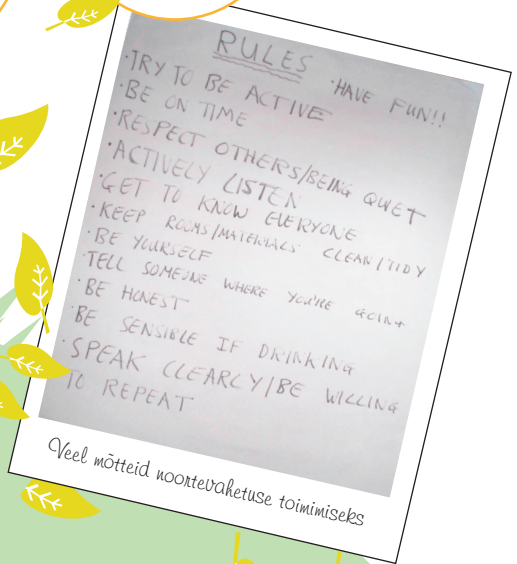 RULES
·HAVE FUN!!
·TRY TO BE ACTIVE
·BE ON TIME
·RESPECT OTHERS/BEING QUIET
·ACTIVELY LISTEN
·GET TO KNOW EVERYONE
·KEEP ROOMS/MATERIALS CLEAN/TIDY
·BE YOURSELF
·TELL SOMEONE WHERE YOU'RE GOING
·BE HONEST
·BE SENSIBLE IF DRINKING
·SPEAK CLEARLY/BE WILLING
TO REPEAT
Veel mõtteid noortevahetuse toimimiseks